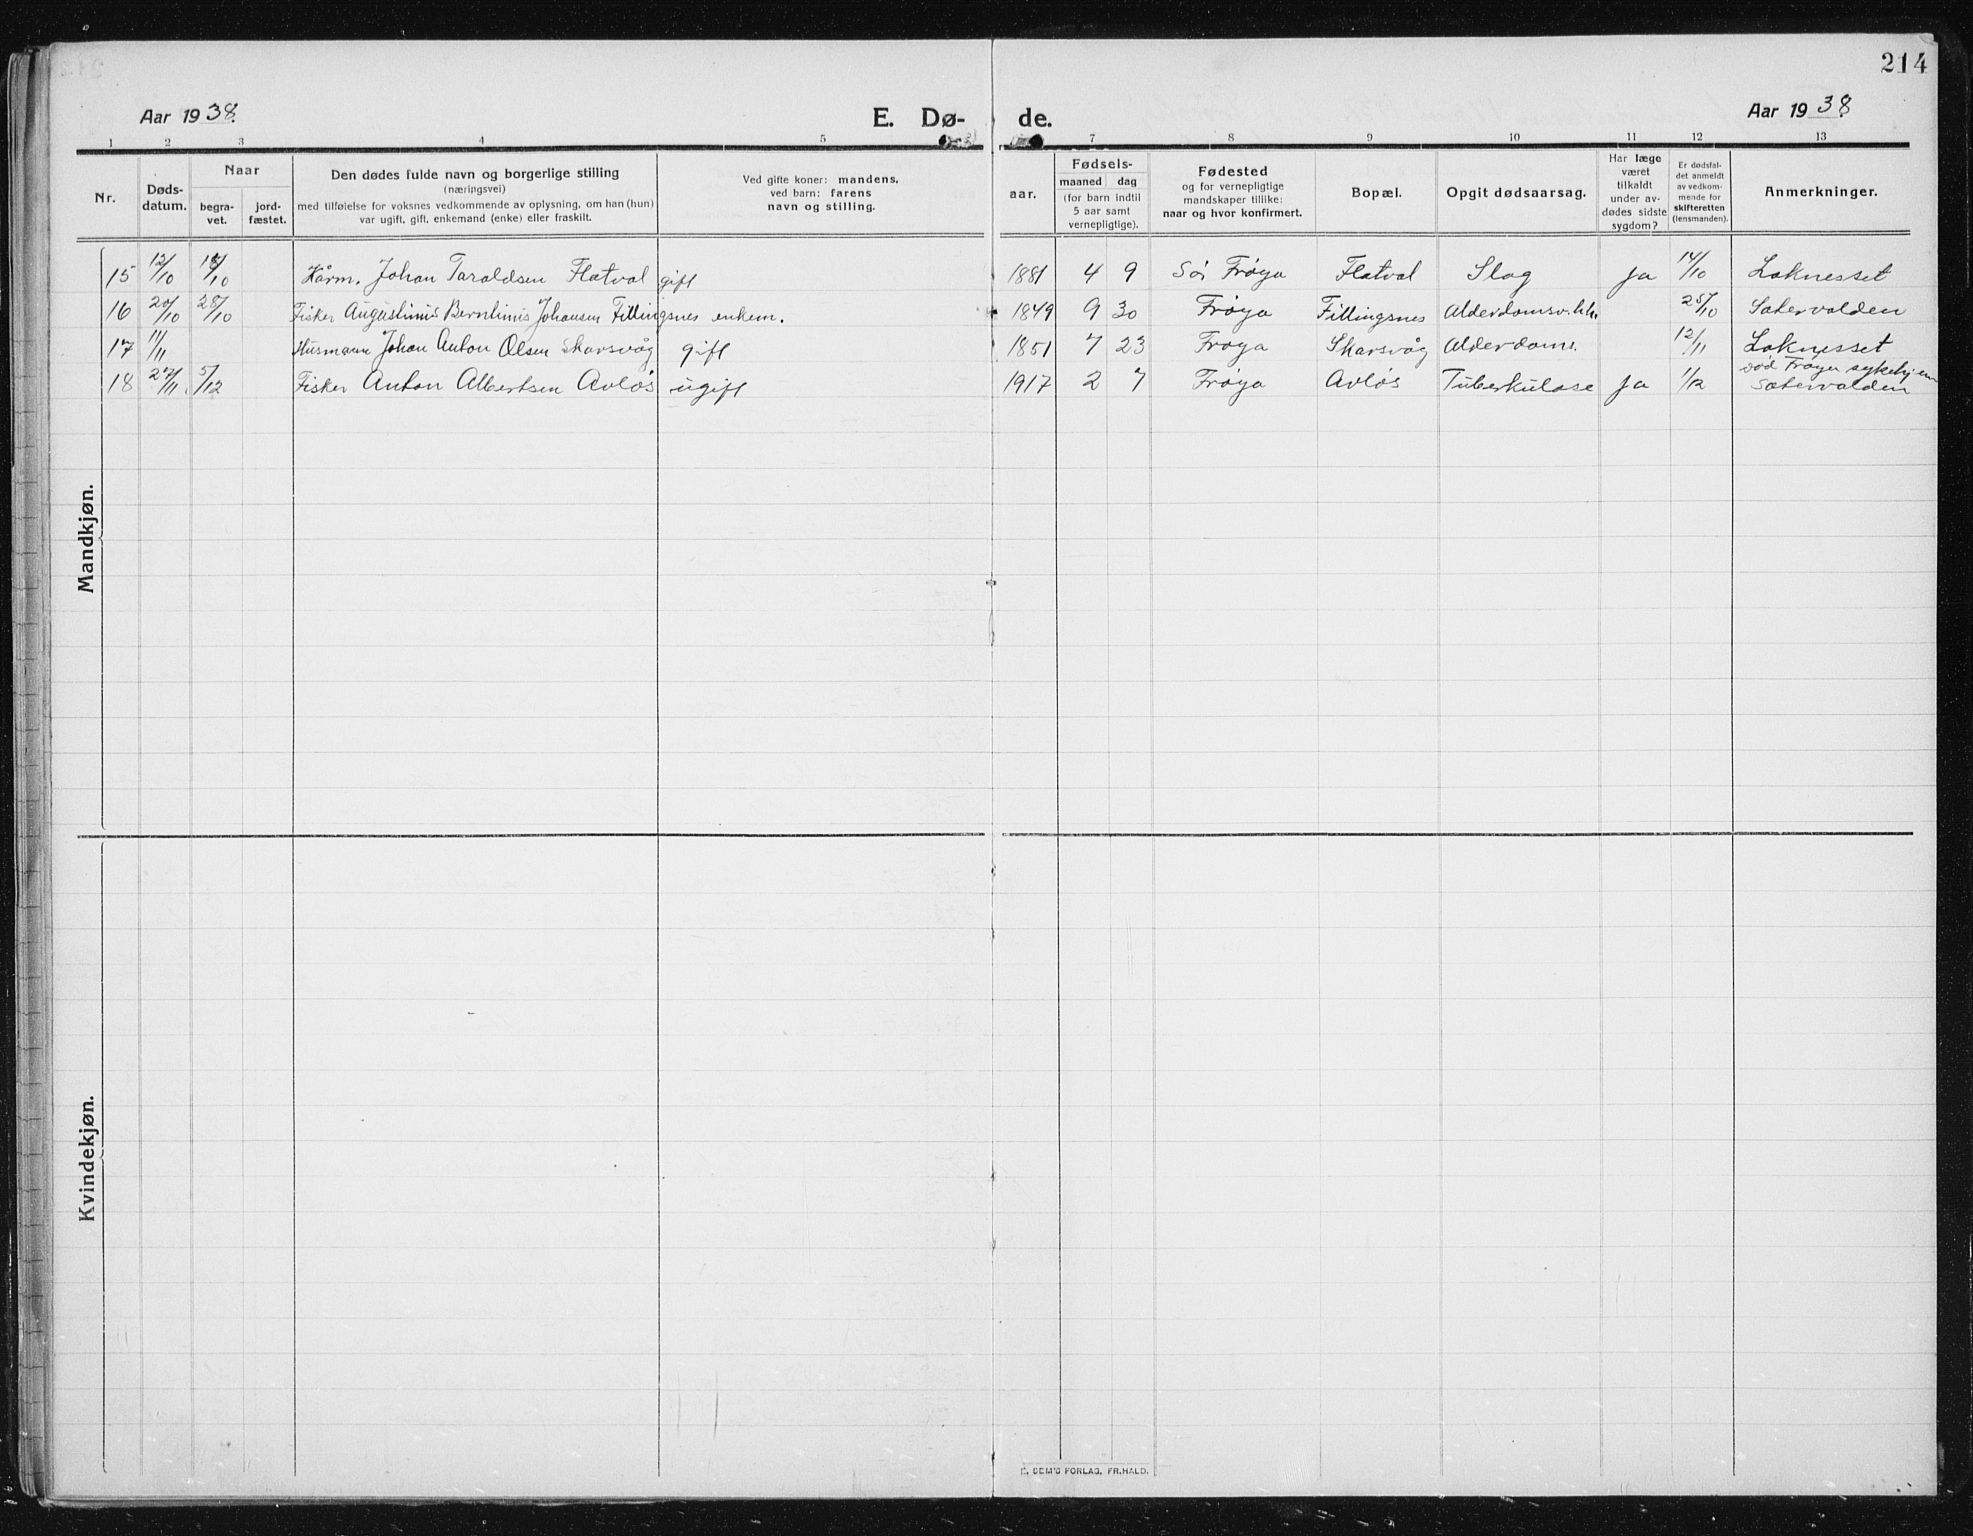 214
Aar 1938. E. Dø- de. Aar 1938
1 2 3 4 5 7 8 9 10 11 12 13
Nr.
Døds-
datum.
Naar
begra-
vet.
jord-
fæstet.
Den dødes fulde navn og borgerlige stilling
(næringsvei)
med tilføielse for voksnes vedkommende av oplysning, om han (hun)
var ugift, gift, enkemand (enke) eller fraskilt.
Ved gifte koner: mandens,
ved barn: farens
navn og stilling.
Fødsels-
aar.
maaned dag
(for barn indtil
5 aar samt
vernepligtige).
Fødested
og for vernepligtige
mandskaper tillike:
naar og hvor konfirmert.
Bopæl.
Opgit dødsaarsag.
Har læge
været
tilkaldt
under av-
dødes sidste
sygdom?
Er dødsfal-
det anmeldt
av vedkom-
mende for
skifteretten
(lensmanden).
Anmerkninger.
15 12/10 /10 Johan Taraldsen Flatval gift 1881 4 9 Sør Frøya Flatval Slag ja 14/10 Loknesset
16 20/10 28/10 Fisker Augustinus Berntinus Johansen Fillingsnes enkem. 1849 9 30 Frøya Fillingsnes 25/10 Sætervolden
17 11/11 Husmann Johan Anton Olsen Skarsvåg gift 1851 7 23 Frøya Skarsvåg Alderdoms. 12/11 Loknesset
18 27/11. 5/12 Fisker Anton Albertsen Avløs ugift 1917 2 7 Frøya Avløs Tuberkulose ja 1/12 død Frøya sykehjem
Sætervolden
Mandkjøn.
Kvindekjøn.
E. SEM'S FORLAG, FR.HALD.